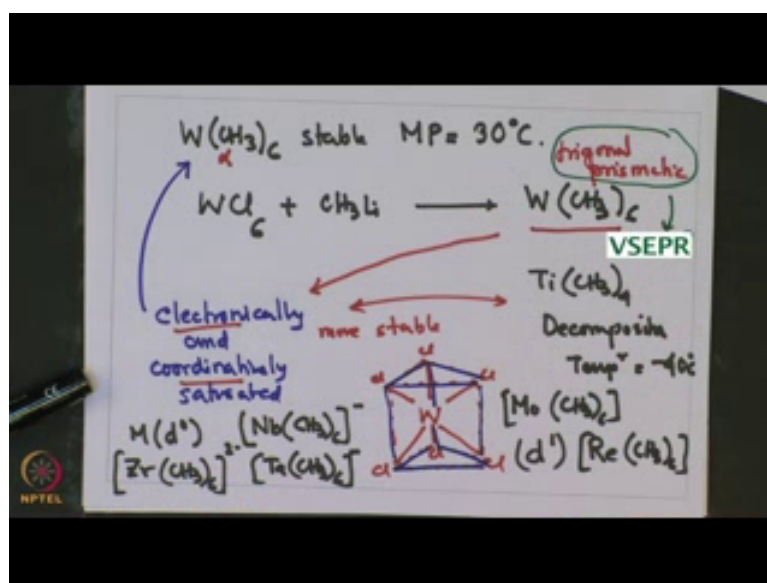 W(CH3)6 stable MP= 30°C.
α
trigonal
prismatic
WCl6 + CH3Li ⟶ W(CH3)6
VSEPR
Ti(CH3)4
electronically
and
coordinatively
saturated
more stable
Decomposition
Temp^r = -40°C
M(d°) [Nb(CH3)6]⁻
[Zr(CH3)6]²⁻ [Ta(CH3)6]⁻
Cl
Cl Cl
W
Cl Cl Cl
[Mo(CH3)6]
(d¹) [Re(CH3)6]
NPTEL